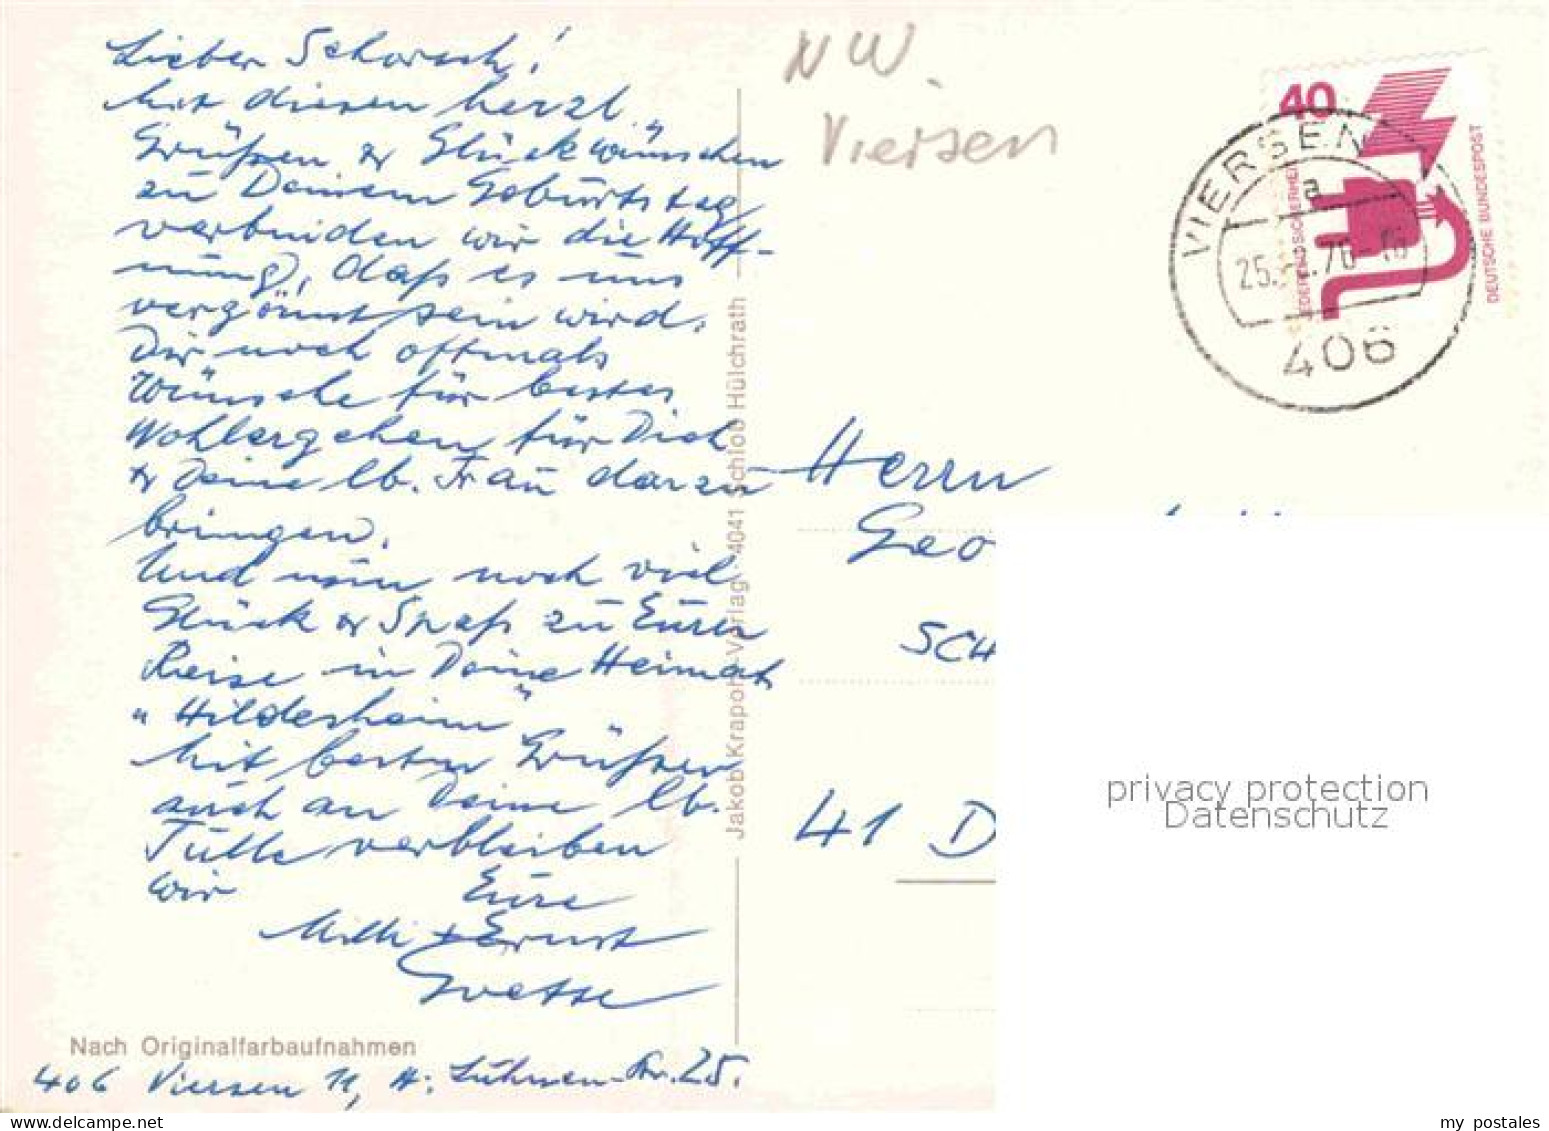 Lieber Schorsch!
Mit diesen herzl.
Grüßen & Glückwünschen
zu Deinem Geburtstag
verbinden wir die Hoff-
nung, daß es uns
vergönnt sein wird,
Dir noch oftmals
Wünsche für bestes
Wohlergehen für Dich
& Deine lb. Frau darzu-
bringen.
Und nun noch viel
Glück & Spaß zu Eurer
Reise in Deine Heimat
„Hildesheim"
Mit besten Grüßen
auch an Deine lb.
verbleiben
wir Eure
+ Ernst
Nach Originalfarbaufnahmen
406 Viersen 11,
25.
Jakob Krapohl-Verlag · 4041 Schloß Hülchrath
NW.
Viersen
40
JEDERZEIT SICHERHEIT
DEUTSCHE BUNDESPOST
VIERSEN
a
406
Herrn
Geo
SCH
41 D
privacy protection
Datenschutz
my postales